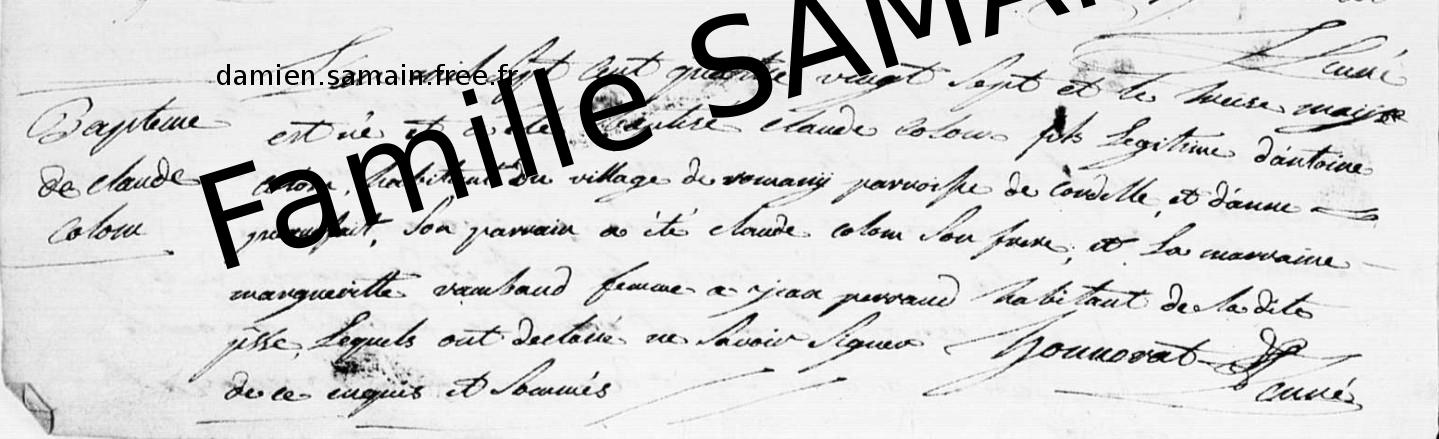 curé
damien.samain.free.fr
Famille SAMAI
L'an mil sept cent quatre vingt sept et le treise mays
Bapteme
est né et a été baptisé claude colom fils legitime d'antoine
de claude
colom, habitant du village de romany parroisse de condelle, et d'anne
colom
parfait, son parrain a été claude colom son frere, et la marraine
margueritte rambaud femme a jean perraud habitant de la dite
psse, lequels ont declaré ne savoir signer Honnorat
de ce enquis et sommés
curé